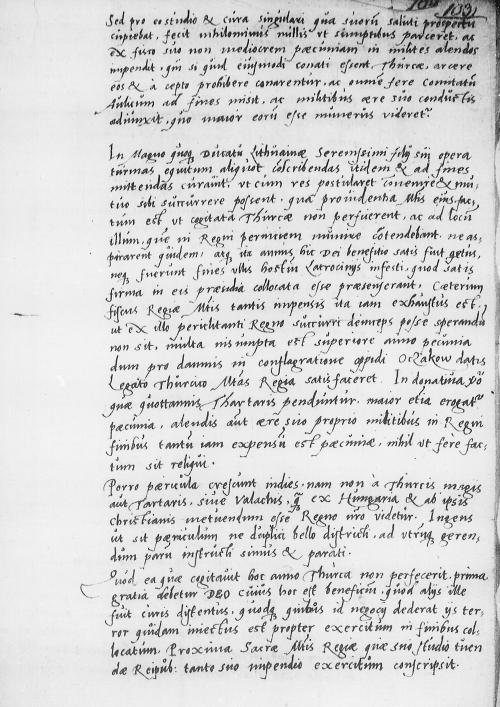 103
Sed pro costudio & cura singulari qua suorū saluti prospectū
cupiebat, fecit nihilominus nullis vt sumptibus parceret, ac
ex fisco suo non mediocrem pæcuniam in milites alendos
impendit, qui si quid eiusmodi conati essent, Thurcæ, arcere
eos & a cepto prohibere conarentur, ac omnē fere Comitatū
Aulicum ad fines misit, ac militibus ære suo conductis
adiunxit, quo maior eorū esse numerus videretr.
In Magno quoq Ducatu Lithuaniæ Serenissimi filij sui opera
turmas equitum aliquot coscribendas itidem & ad fines
mittendas curauit, vt cum res postularet conuenire & mu-
tuo sibi succurrere possent, qua prouidentia Mtis eius fac-
tum est vt cogitata Thurcæ non perfuerent, ac ad locū
illum, que in Regni perniciem munire cōtendebant, ne as-
pirarent quidem, atq ita annus hic Dei beneficio satis fuit quietus,
neq fuerunt fines vllis hostiū Latrocinijs infesti, quod satis
firma in eis præsidia collocata esse præsenserant. Cæterum
fiscus Regiæ Mtis tantis impensis ita iam exhaustus est,
ut ex illo periclitanti Regno succurri deinceps posse sperandū
non sit, multa nisumpta est superiore anno pecunia
dum pro damnis in conflagratione oppidi Oczakow datis
Legato Thurcico Mtas Regia satisfaceret. In donatiua vō
quæ quottannis Thartaris penduntur, maior etiā erogatr
pæcunia, alendis aut ære suo proprio militibus in Regni
finibus tantū iam expensū est pæcuniæ, nihil vt fere fac-
tum sit reliqui.
Porro pæricula crescunt indies, nam non à Thurcis magis
aut Tartaris, siue Valachis, q ex Hungaria & ab ipsis
Christianis metuendum esse Regno nro videtur. Ingens
ut sit pæriculum ne duplici bello districti, ad vtrūq geren-
dum parū instructi simus & parati.
Quod ea quæ cogitauit hoc anno Thurca non perfecerit, prima
gratia debetur DEO cuius hoc est beneficiū, quod alijs ille
fuit curis distentus, quodq quibus id negocij dederat ijs ter-
ror quidam iniectus est propter exercitum in finibus col-
locatum. Proxima Sacræ Mtis Regiæ quæ suo studio tuen
dæ Reipub: tanto suo impendio exercitum conscripsit.